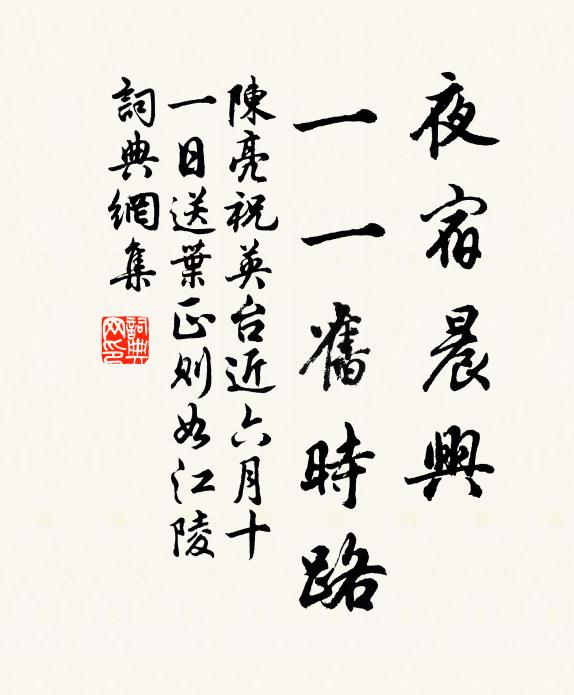 夜宿晨興
一一舊時路
陳亮祝英台近六月十
一日送葉正則如江陵
詞典網集
詞典
网印